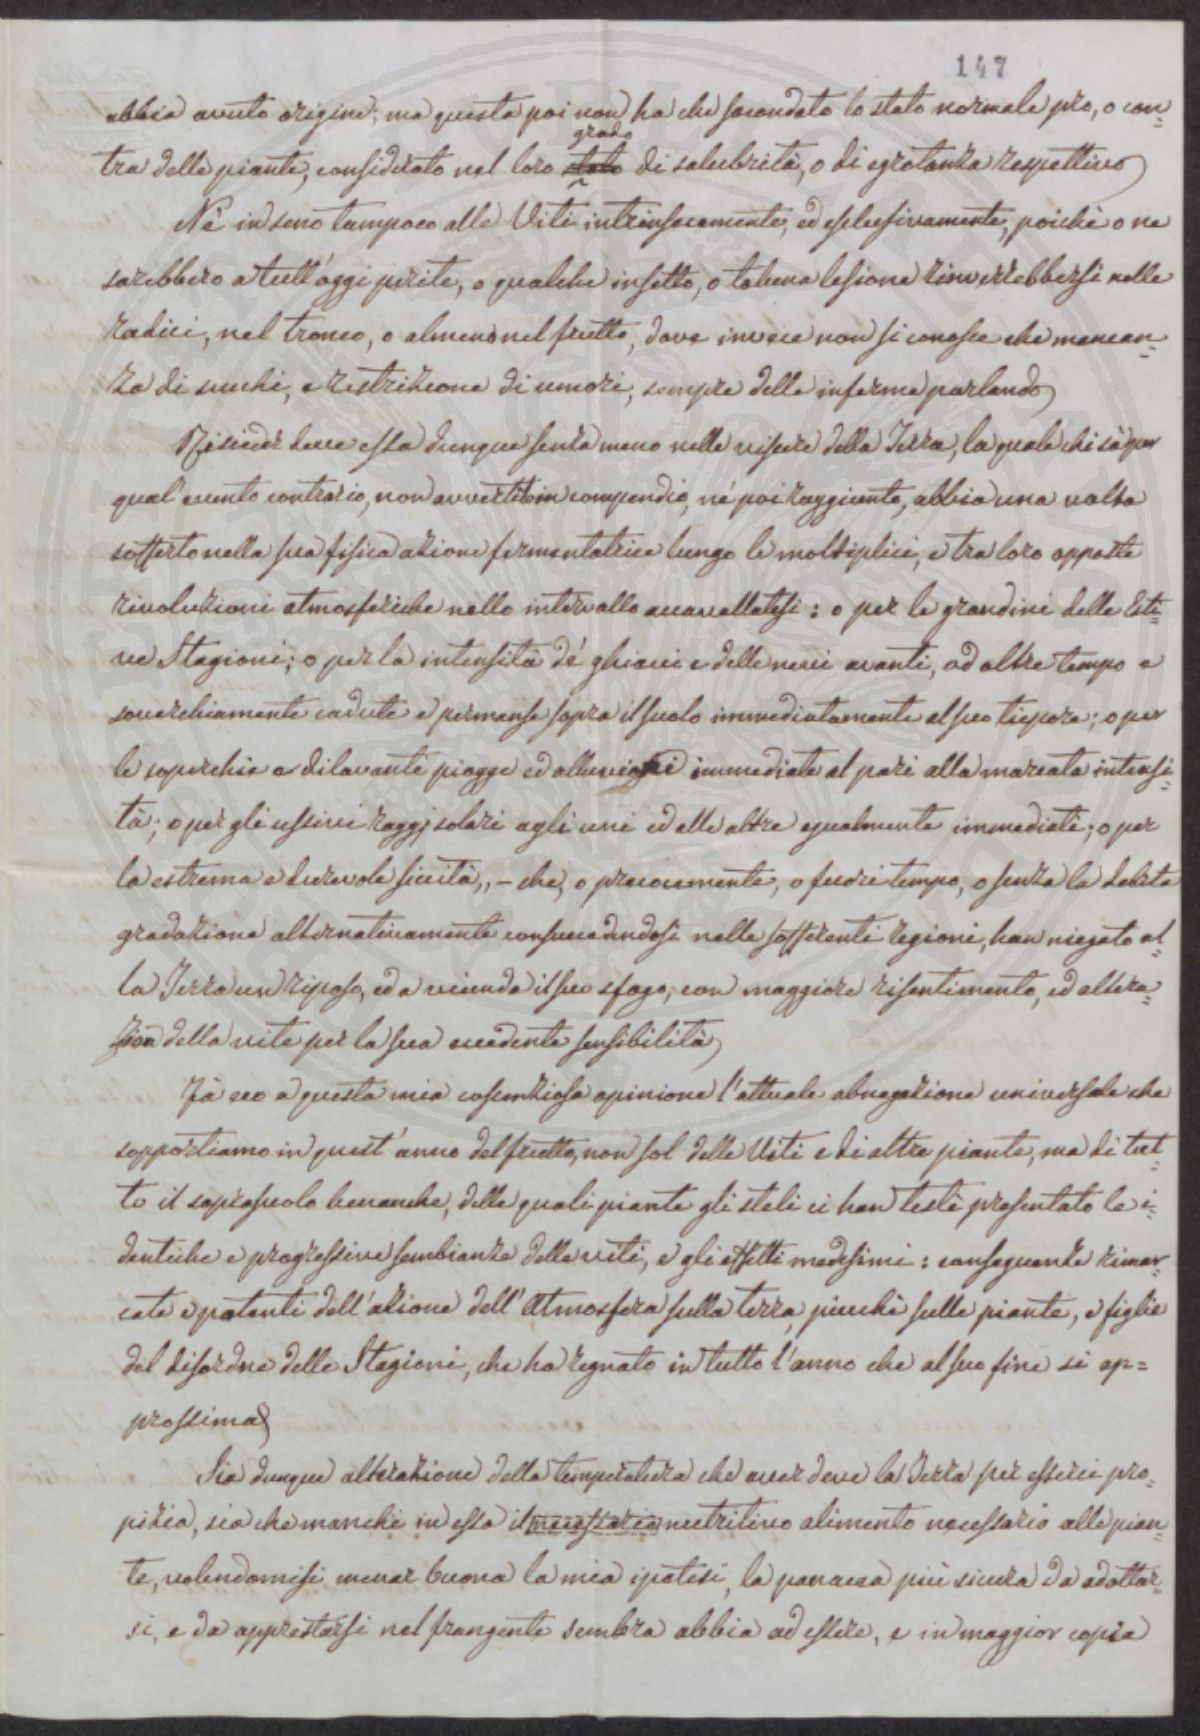 147
abbia avuto origine; ma questa poi non ha che secondato lo stato normale pro, o con=
tra delle piante, considerato nel loro grado di salubrità, o di egrotanza respettivo
Nè in seno tampoco alle Viti intrinsecamente, ed esclusivamente, poichè o ne
sarebbero a tutt'oggi perite, o qualche insetto, o taluna lesione rinverrebbersi nelle
radici, nel tronco, o almeno nel frutto, dove invece non si conosce che mancan=
za di succhi, e restrizione di umori, sempre delle inferme parlando
Risieder deve essa dunque senza meno nelle viscere della Terra, la quale chi sà per
qual'evento contrario, non avvertito in compendio, nè poi raggiunto, abbia una volta
sofferto nella sua fisica azione fermentatrice lungo le moltiplici, e tra loro opposte
rivoluzioni atmosferiche nello intervallo accavellatesi: o per le grandini delle Esti=
ve Stagioni; o per la intensità de' ghiacci e delle nevi avanti, od oltre tempo e
soverchiamente cadute e permanse sopra il suolo immediatamente al suo tiepore; o per
le soperchie e dilavanti piogge ed alluvioni immediate al pari alla marcata intensi=
tà; o per gli ussivi raggj solari agli uni ed alle altre egualmente immediati; o per
la estrema e durevole siccità,, - che, o precocemente, o fuori tempo, o senza la debita
gradazione alternativamente consuccedendosi nelle sofferenti regioni, han niegato al=
la Terra un riposo, ed a vicenda il suo sfogo, con maggiore risentimento, ed altera=
zion della vite per la sua eccedente sensibilità
Fà eco a questa mia coscenziosa opinione l'attuale abnegazione universale che
sopportiamo in quest'anno del frutto, non sol delle Viti e di altre piante, ma di tut=
to il soprasuolo benanche, delle quali piante gli steli ci han testè presentato le i=
dentiche e progressive sembianze delle viti, e gli effetti medesimi: conseguenze rimar=
cate e potenti dell'azione dell'Atmosfera sulla terra, piucchè sulle piante, e figlie
del disordne delle Stagioni, che ha regnato in tutto l'anno che al suo fine si ap=
prossima
Sia dunque alterazione della temperatura che aver deve la Terra per esserci pro=
pizia, sia che manchi in essa il necessario nutritivo alimento necessario alle pian=
te, volendomisi menar buona la mia ipotesi, la panacea più sicura da adottar=
si, e da apprestarsi nel frangente sembra abbia ad essere, e in maggior copia